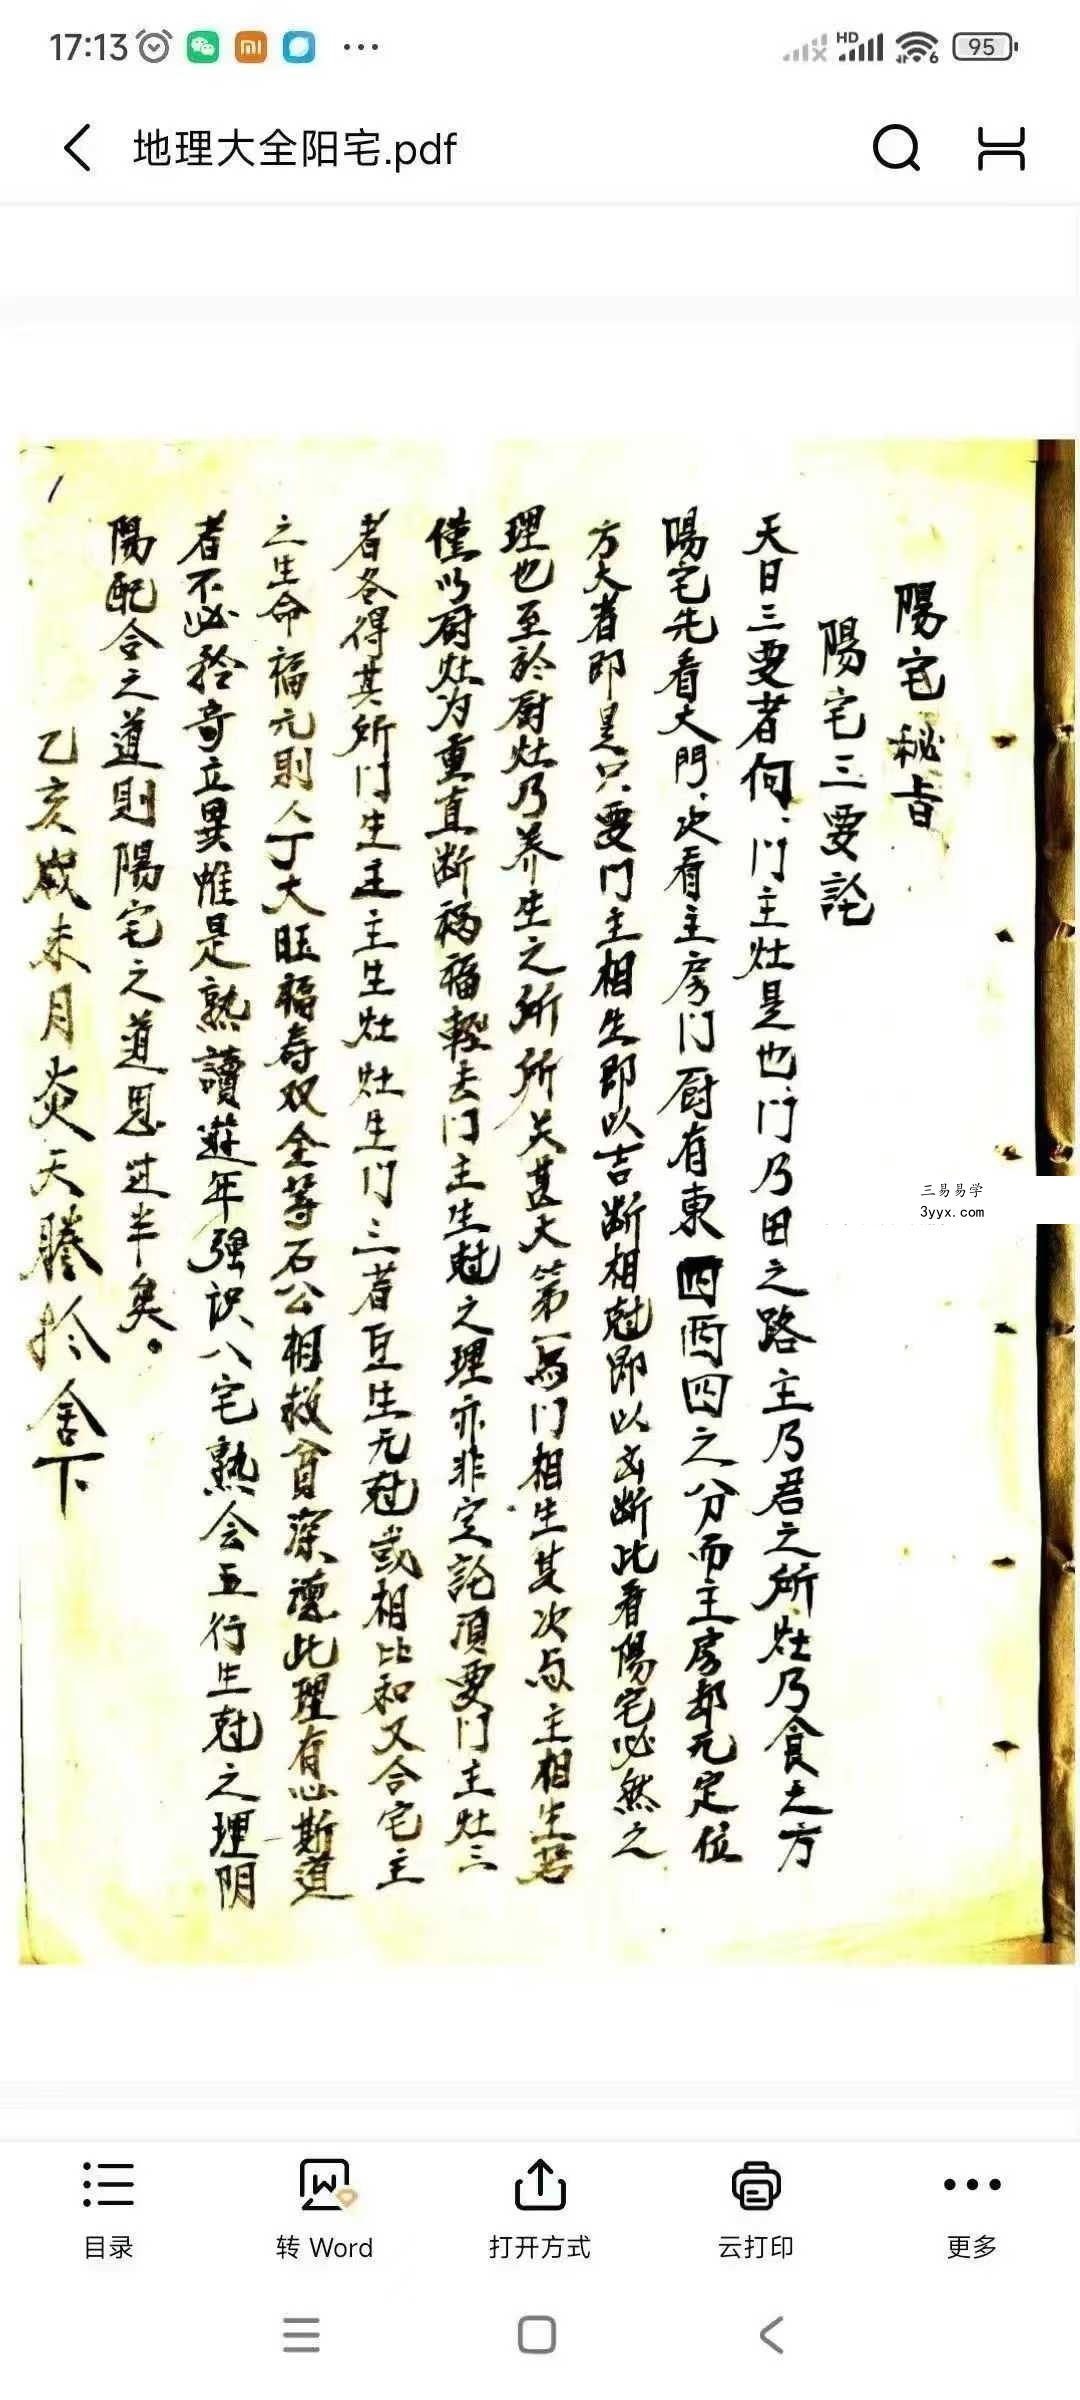 17:13
HD
6
95
地理大全阳宅.pdf
1
陽宅秘旨
陽宅三要論
天日三要者何、门主灶是也、门乃田之路主乃君之所灶乃食之方
陽宅先看大門、次看主房门厨有東四西四之分而主房却无定位
方大者即是只要门主相生即以吉断相尅即以凶断此看陽宅必然之
理也至於厨灶乃养生之所所关甚大第一与门相生其次与主相生若
僅以厨灶为重直断祸福輕去门主生尅之理亦非定論須要门主灶三
者各得其所门生主主生灶灶生门三者互生无尅或相比和又合宅主
之生命福元則人丁大旺福寿双全等石公相救貧深德此理有心斯道
者不必矜奇立異惟是熟讀遊年强识八宅熟会五行生尅之理阴
陽配合之道則陽宅之道思过半矣。
乙亥嵗未月炎天謄於舍下
三易易学
3yyx.com
目录
转 Word
打开方式
云打印
更多